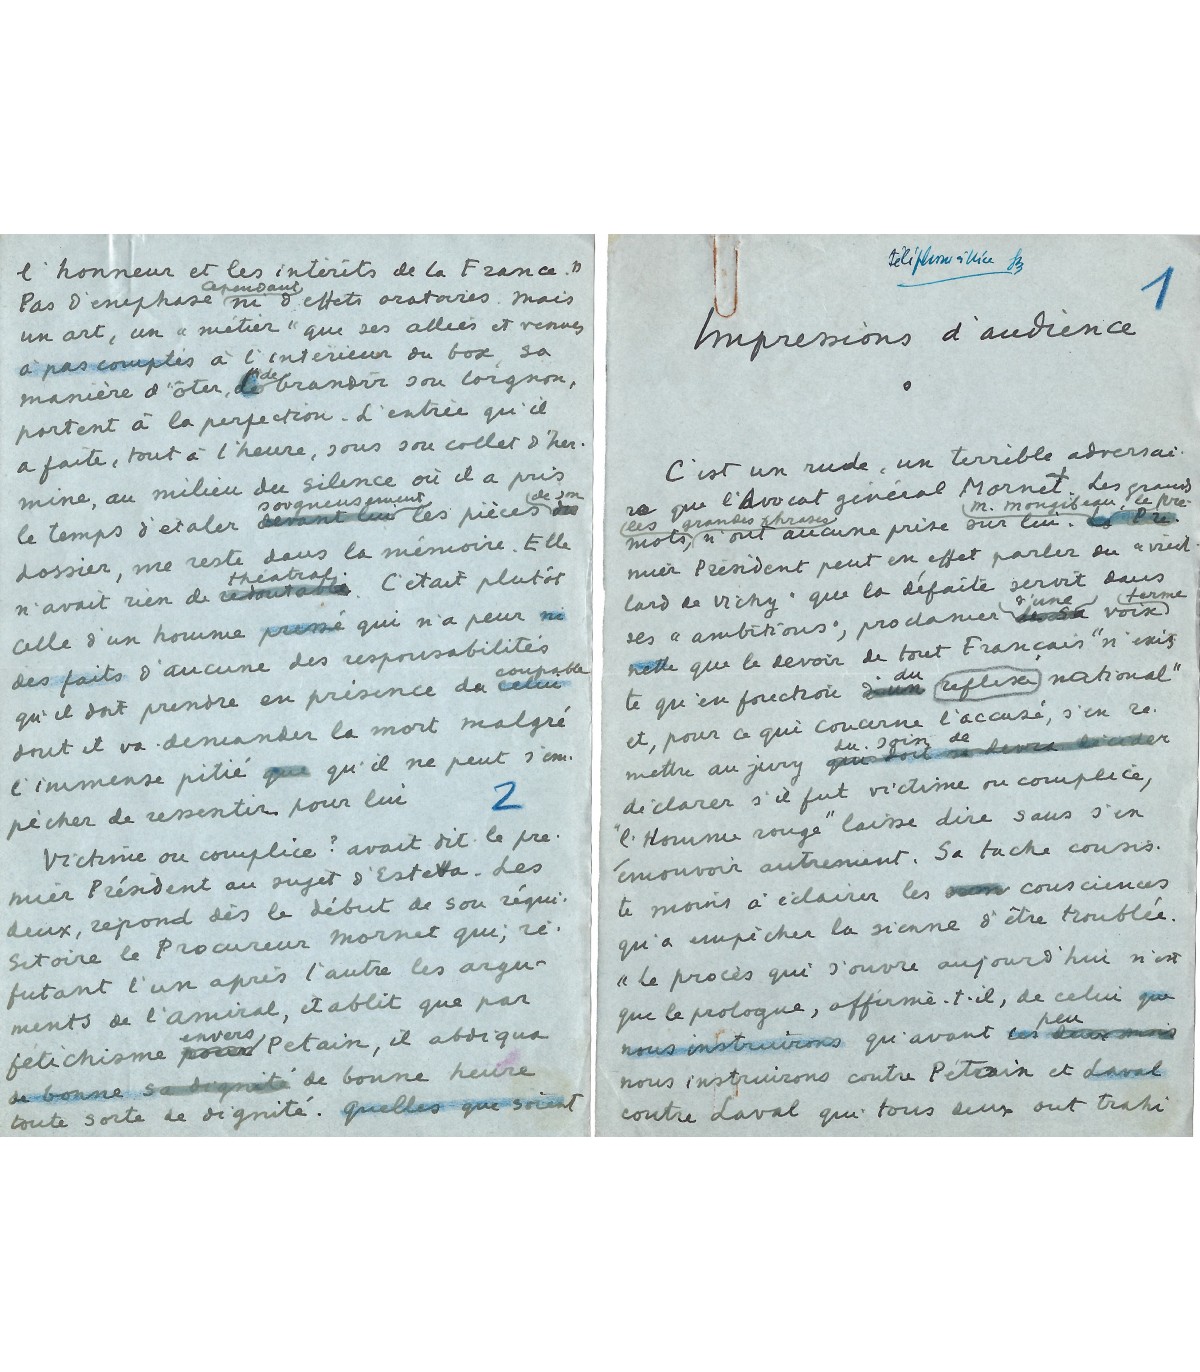 Téléphoné à Nice
1
Impressions d'audience
C'est un rude, un terrible adversai-
re que l'Avocat général Mornet. Les grands
les grandes phrases M. Mongibeau, le pre-
mots, n'ont aucune prise sur lui. Le Pre-
mier Président peut en effet parler du "vieil-
lard de Vichy" que la défaite servit dans
ses "ambitions", proclamer de sa voix
d'une ferme
nette que le devoir de tout Français "n'exis-
te qu'en fonction d'un du réflexe national"
et, pour ce qui concerne l'accusé, s'en re-
du soin de
mettre au jury qui doit se devra décider
déclarer s'il fut victime ou complice,
"l'Homme rouge" laisse dire sans s'en
émouvoir autrement. Sa tache consis-
te moins à éclairer les consciences
qu'a empêcher la sienne d'être troublée.
"Le procès qui s'ouvre aujourd'hui n'est
que le prologue, affirme-t-il, de celui que
nous instruirons qu'avant les deux mois
peu
nous instruirons contre Pétain et Laval
contre Laval qui tous deux ont trahi
l'honneur et les intérêts de la France."
cependant
Pas d'emphase ni d'effets oratoires mais
un art, un "métier" que ses allées et venues
à pas comptés à l'intérieur du box, sa
manière d'ôter, de brandir son lorgnon,
portent à la perfection. L'entrée qu'il
a faite, tout à l'heure, sous son collet d'her-
mine, au milieu du silence où il a pris
soigneusement de son
le temps d'étaler devant lui les pièces du
dossier, me reste dans la mémoire. Elle
théatral
n'avait rien de redoutable. C'était plutôt
celle d'un homme pressé qui n'a peur ni
des faits d'aucune des responsabilités
coupable
qu'il doit prendre en présence du celui
dont il va demander la mort malgré
l'immense pitié que qu'il ne peut s'em-
pêcher de ressentir pour lui
2
Victime ou complice? avait dit le pre-
mier Président au sujet d'Esteva. Les
deux, répond dès le début de son réqui-
sitoire le Procureur Mornet qui, ré-
futant l'un après l'autre les argu-
ments de l'amiral, établit que par
envers
fétichisme pour Pétain, il abdiqua
de bonne sa dignité de bonne heure
toute sorte de dignité. Quelles que soient